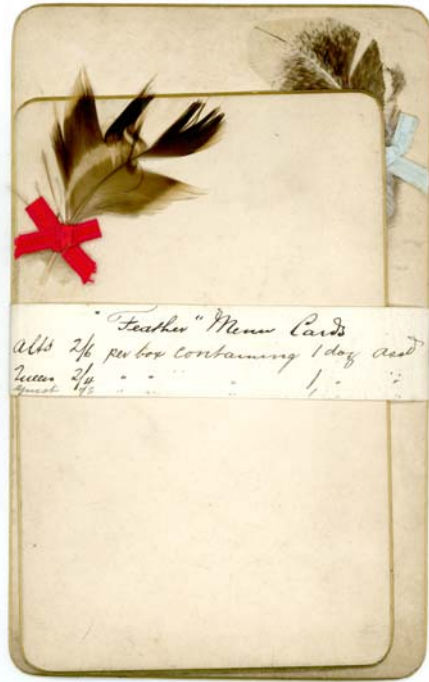 "Feather" Menu Cards
Alb's 2/6 per box containing 1 doz assd
Queen 2/4 " " " " 1 " "